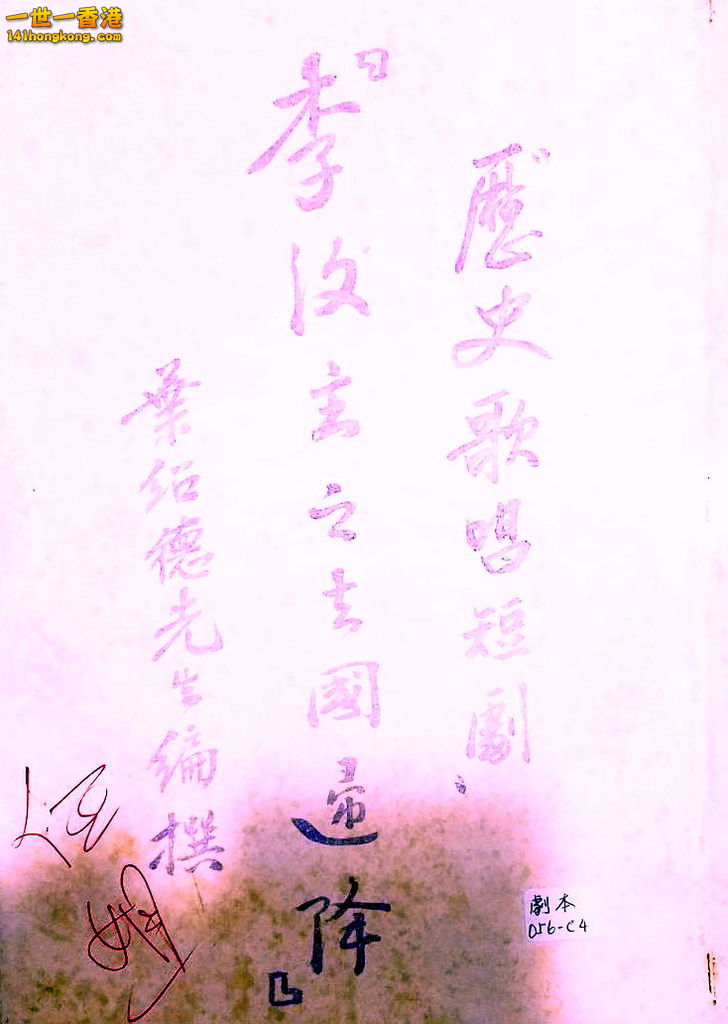 一世一香港
141hongkong.com
〝歷史歌唱短劇〟
『李後主之去國歸降』
葉紹德先生編撰
劇本
056-C4